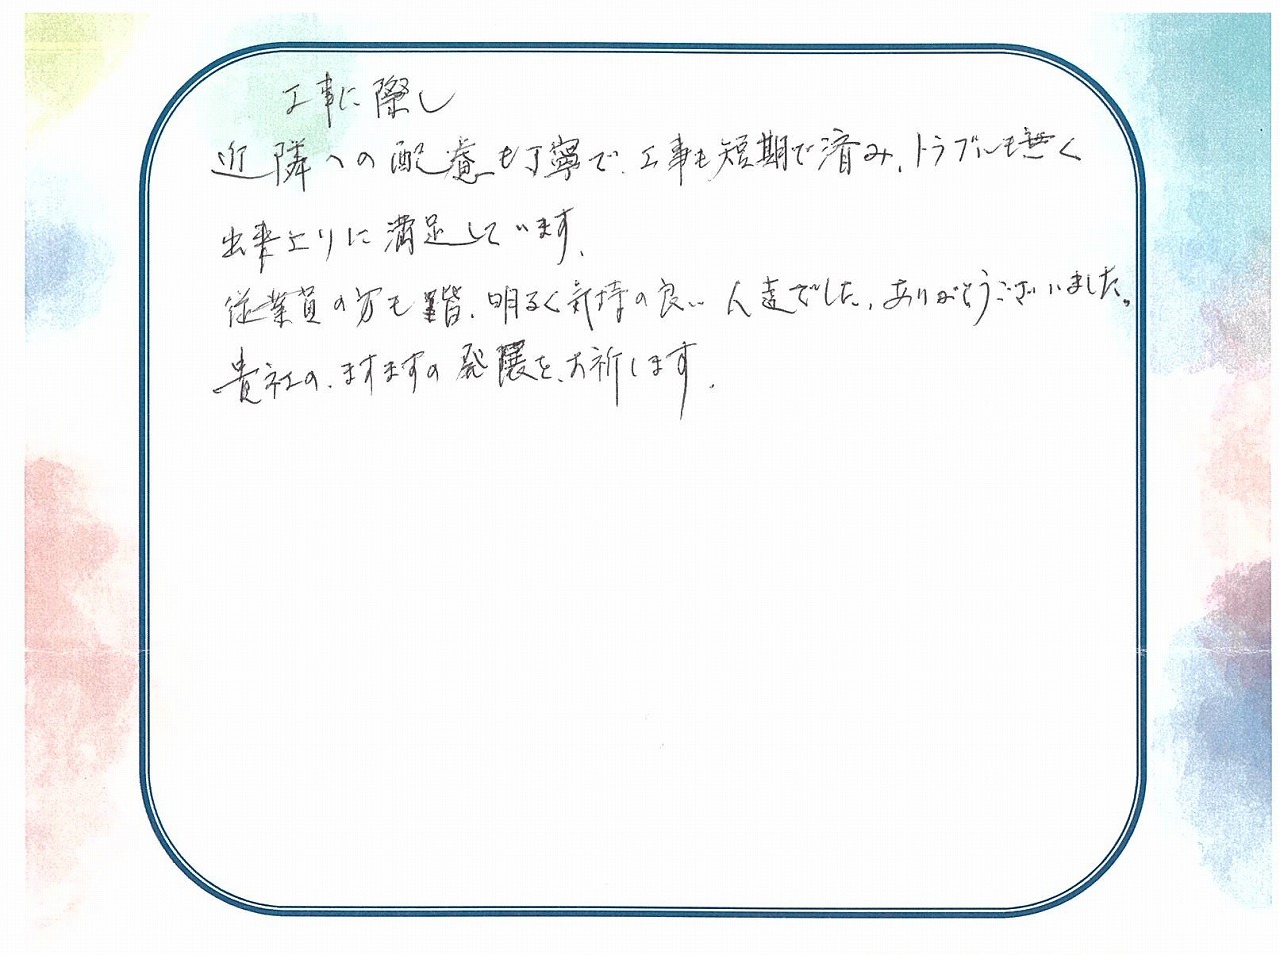 工事に際し
近隣への配慮も丁寧で、工事も短期で済み、トラブルも無く
出来上りに満足しています。
従業員の方も皆、明るく気持の良い人達でした。ありがとうございました。
貴社の、ますますの発展を、お祈します。